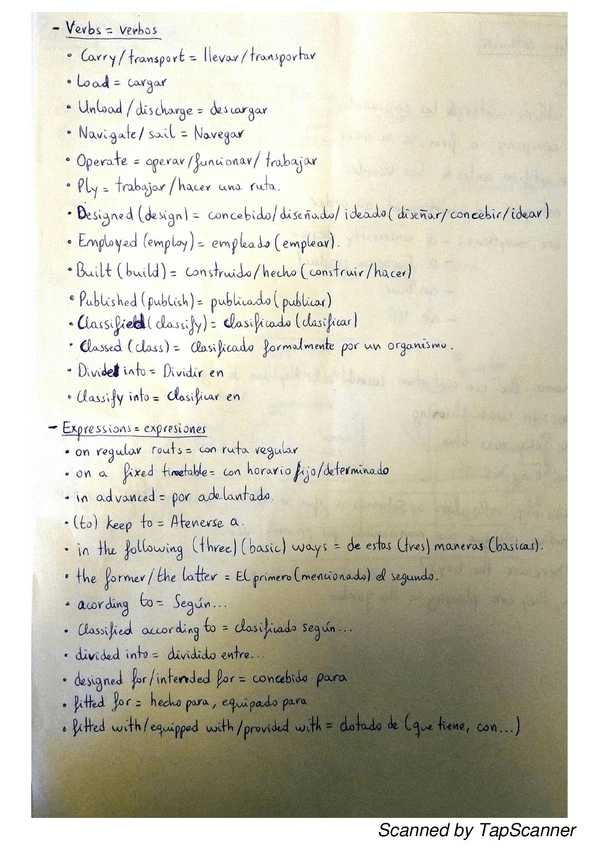 - Verbs = verbos
• Carry/transport = llevar/transportar
• Load = cargar
• Unload/discharge = descargar
• Navigate/sail = Navegar
• Operate = operar/funcionar/trabajar
• Ply = trabajar/hacer una ruta.
• Designed (design) = concebido/diseñado/ideado (diseñar/concebir/idear)
• Employed (employ) = empleado (emplear).
• Built (build) = construido/hecho (construir/hacer)
• Published (publish) = publicado (publicar)
• Classified (classify) = clasificado (clasificar)
• Classed (class) = clasificado formalmente por un organismo.
• Divide into = Dividir en
• Classify into = Clasificar en
- Expressions = expresiones
• on regular routs = con ruta regular
• on a fixed timetable = con horario fijo/determinado
• in advanced = por adelantado.
• (to) keep to = Atenerse a.
• in the following (three) (basic) ways = de estas (tres) maneras (basicas).
• the former/the latter = El primero (mencionado) el segundo.
• acording to = Según...
• Classified according to = clasificado según...
• divided into = dividido entre...
• designed for/intended for = concebido para
• fitted for = hecho para, equipado para
• fitted with/equipped with/provided with = dotado de (que tiene, con...)
Scanned by TapScanner